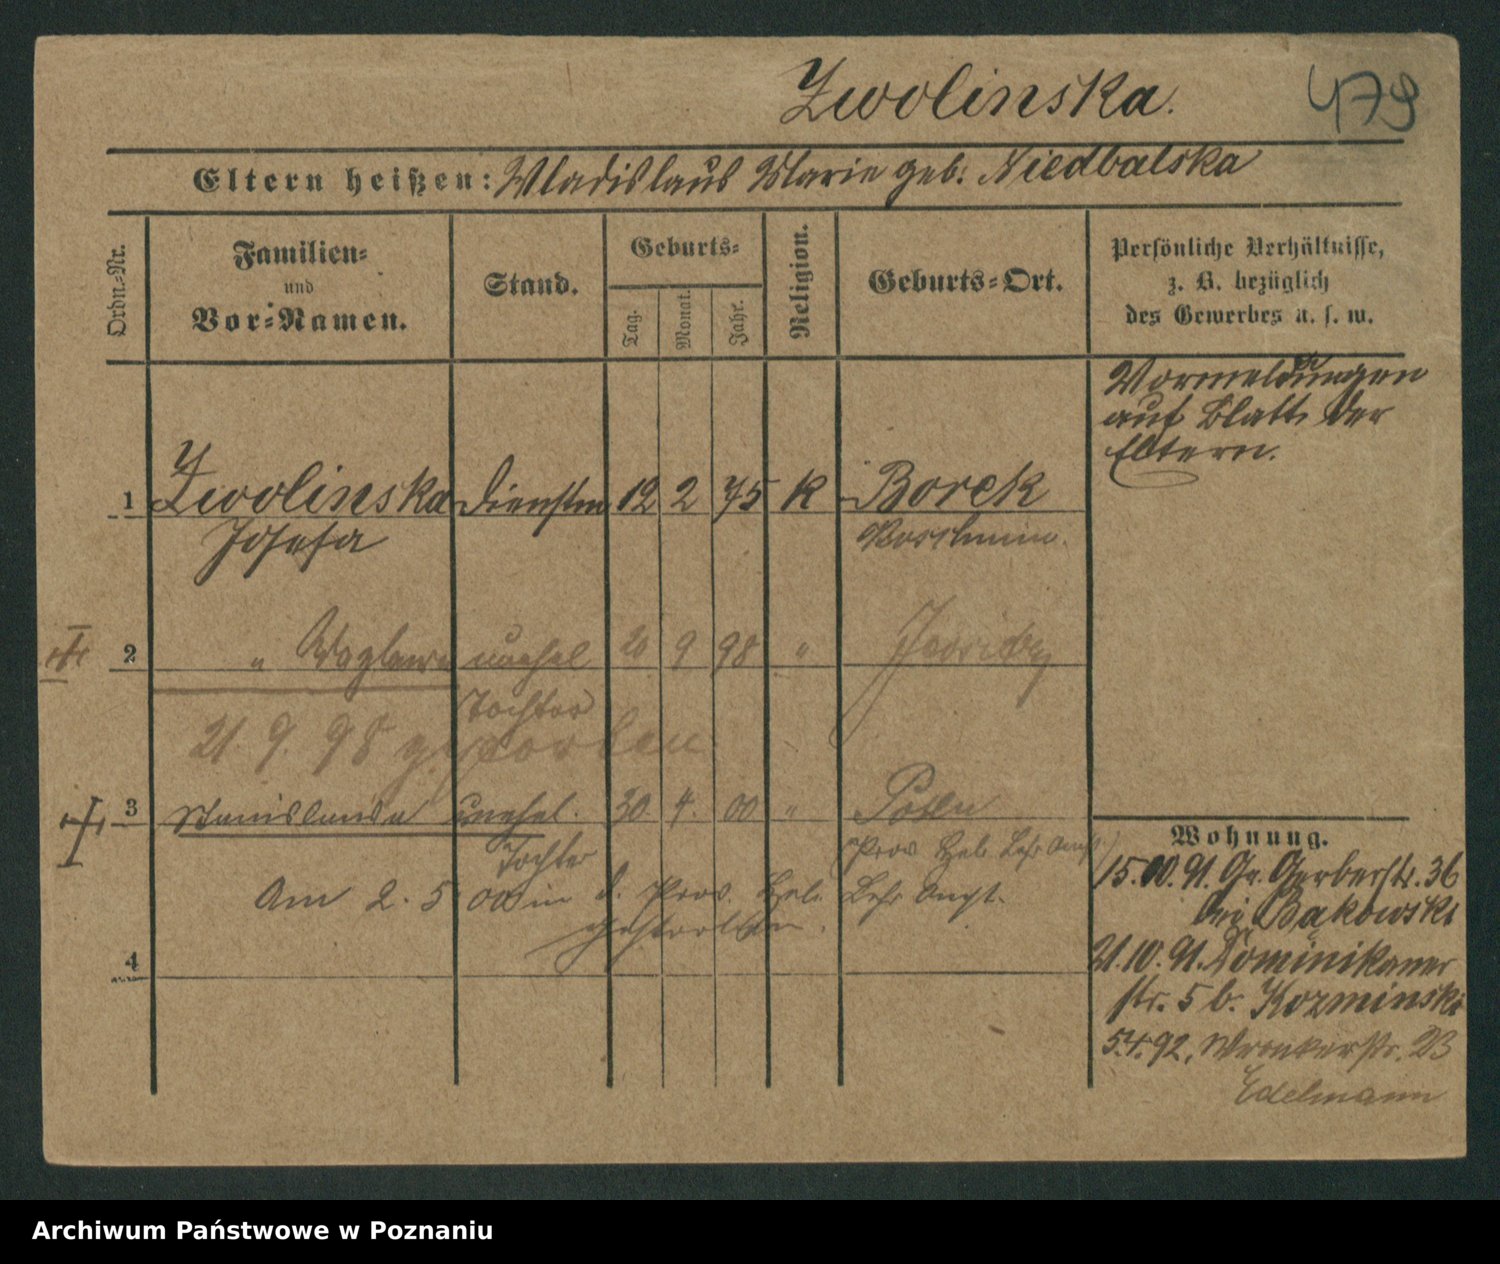 Zwolinska.
479
Eltern heißen: Wladislaus Marie geb. Niedbalska
Ordn.-Nr.
Familien-
und
Vor-Namen.
Stand.
Geburts-
Tag.
Monat.
Jahr.
Religion.
Geburts-Ort.
Persönliche Verhältnisse,
z. B. bezüglich
des Gewerbes u. s. w.
Vormeldungen
auf Blatt der
Eltern.
1 Zwolinska Dienstm 12 2 75 K Borek
Josefa
2 " unehel 20 9 98 "
Tochter
21. 9. 98 gestorben
3 Stanislawa unehel. 30. 4. 00 " Posen
Tochter (Prov Heb. Lehr Anst.)
Am 2. 5 00 in d. Prov. Heb. Lehr Anst.
gestorben.
4
Wohnung.
15.10.91. Gr. Gerberstr. 36
bei Bąkowski
21.10.91. Dominikaner
str. 5 b. Kozminski
5.4.92. Wronkerstr. 23
Edelmann
Archiwum Państwowe w Poznaniu